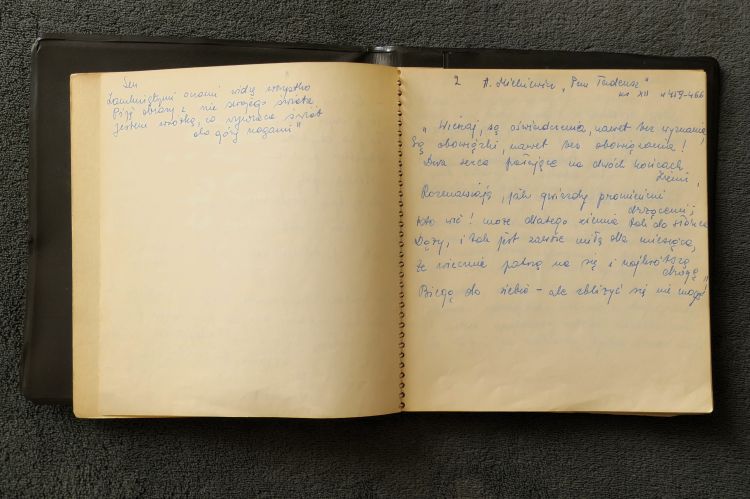 Sen
Zamkniętymi oczami widzę wszystko
Piję obrazy z nie swojego świata
Jestem wróżką, co wywraca świat
do góry nogami"
Z A. Mickiewicz „Pan Tadeusz"
ks XII w 459-466
„Wierzaj, są oświadczenia, nawet bez wyznania,
Są obowiązki, nawet bez obowiązania!
Dwa serca pałające na dwóch końcach
Ziemi,
Rozmawiają, jak gwiazdy promieniami
drżącemi;
Kto wie! może dlatego ziemia tak do słońca
Dąży, i tak jest zawsze miłą dla miesiąca,
Że wiecznie patrzą na się i najkrótszą
drogą
Biegą do siebie – ale zbliżyć się nie mogą!"